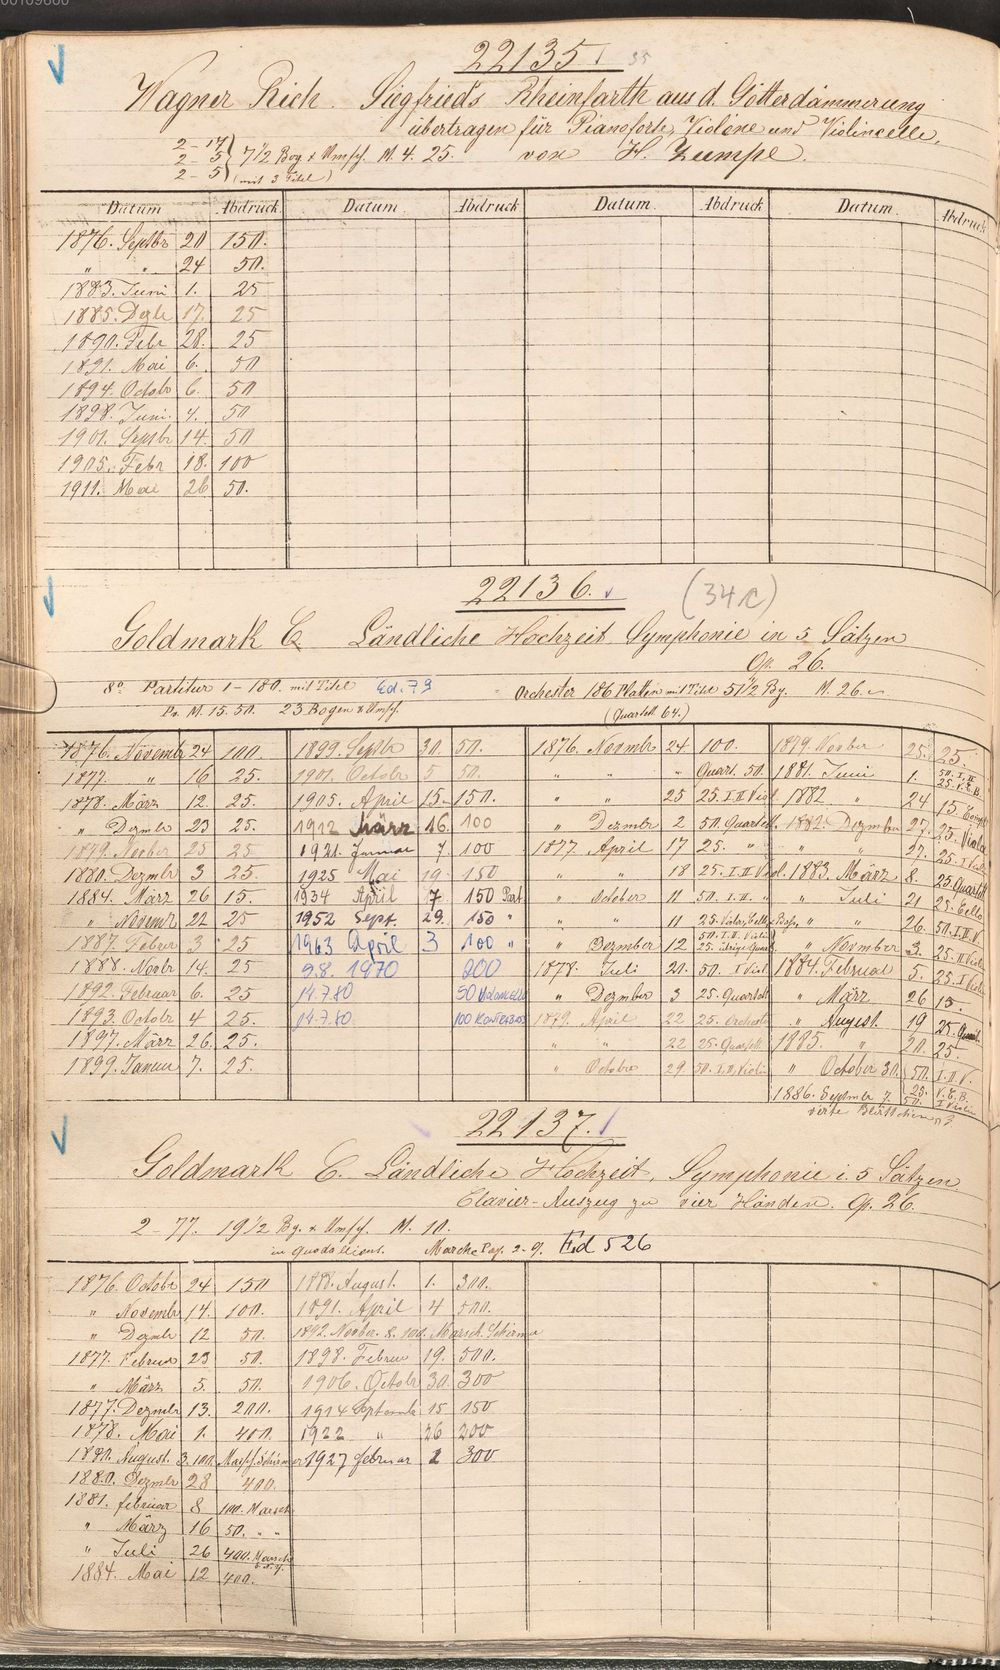 22135
35
Wagner Rich. Siegfried's Rheinfarth aus d. Götterdämmerung
übertragen für Pianoforte, Violine und Violincelle,
von H. Zumpe.
2 - 17
2 - 5
2 - 5
7 1/2 Bog. & Umschl. M. 4. 25.
(mit 3 Titel)
Datum Abdruck Datum. Abdruck Datum. Abdruck Datum. Abdruck
1876. Septbr 20 150.
" " 24 50.
1883. Juni 1. 25
1885. Dezbr 17. 25
1890. Febr 28. 25
1891. Mai 6. 50
1894. Octobr 6. 50
1898. Juni. 4. 50
1901. Septbr 14. 50
1905. Febr 18. 100
1911. Mai 26 50.
22136.
(34 c)
Goldmark C. Ländliche Hochzeit Symphonie in 5 Sätzen
Op. 26.
8° Partitur 1-180. mit Titel Ed. 79
Pr. M. 15. 50. 23 Bogen & Umschl.
Orchester 186 Platten mit Titel 51 1/2 Bg. M. 26.
(Quartett 64.)
1876. Novembr 24 100. 1899. Septbr 30. 50. 1876. Novmbr 24 100. 1879. Novber 25. 25.
1877. " 16 25. 1901. Octobr 5 50. " " " Quart. 50. 1881. Juni 1. 50. I. II 25. V. C. B.
1878. März 12. 25. 1905. April 15. 150. " " 25 25. I. II Viol. 1882. " 24 15.
" Dezmbr 23 25. 1912 März 16. 100 " Dezmbr 2 50. Quartett. 1882. Dezmber 27. 25. Viola
1879. Novber 25 25 1921. Januar 7. 100 1877. April 17 25. " " " 27. 25. I Violi
1880. Dezmbr 3 25. 1925 Mai 19. 150 " " 18 25. I. II Viol. 1883. März 8. 25. Quartett
1884. März 26 15. 1934 April 7 150 Part. " October 11 50. I. II. " " Juli 21 25. Cello
" Novemr 22 25 1952 Sept. 29. 150 " " " 11 25. Viola, Cello, Bass, " " 26. 50. I. II. V.
1887. Februr 3 25 1963 April 3 100 " " Dezember 12 50. I. II. Violin 25. übrige Quart. " November 3. 25. II. Violi
1888. Novbr 14. 25 9.8. 1970 200 1878. Juli 20. 50. I Viol. 1884. Februar 5. 25. I Violi
1892. Februar 6. 25 14.7.80 50 Violoncello " Dezmber 3 25. Quartett " März 26 15.
1893. Octobr 4 25. 14.7.80 100 Kontrabass 1879. April 22 25. Orchestr " August. 19 25. Quart.
1897. März 26. 25. " " 22 25. Quartett. 1885. " 20. 25.
1899. Januar 7. 25. " Octobre 29 50. I. II. Violin " October 30. 50. I. II. V.
1886. Septmbr 7. 25. V. C. B. 50. I Violin
22137.
Goldmark C. Ländliche Hochzeit, Symphonie i. 5 Sätzen
Clavier-Auszug zu vier Händen. Op. 26.
2 - 77. 19 1/2 Bg. & Umschl. M. 10.
Marche Pag. 2-9. Ed 526
1876. Octobr 24 150 1888. August. 1. 300.
" Novembr 14. 100. 1891. April 4 500.
" Dezmbr 12 50. 1892. Novber. 8. 100. Marsch. Schirmer
1877. Februar 23 50. 1898. Februr 19. 500.
" März 5. 50. 1906. Octobr 30. 300
1877. Dezmbr 13. 200. 1914 Septembr 15 150
1878. Mai 1. 400. 1922 " 26 200
1880. August. 3. 100. Marsch. Schirmer 1927 Februar 2 300
1880. Dezmbr 28 400.
1881. Februar 8 100. Marsch
" März 16 50. " "
" Juli 26 400. Marsch
1884. Mai 12 400.